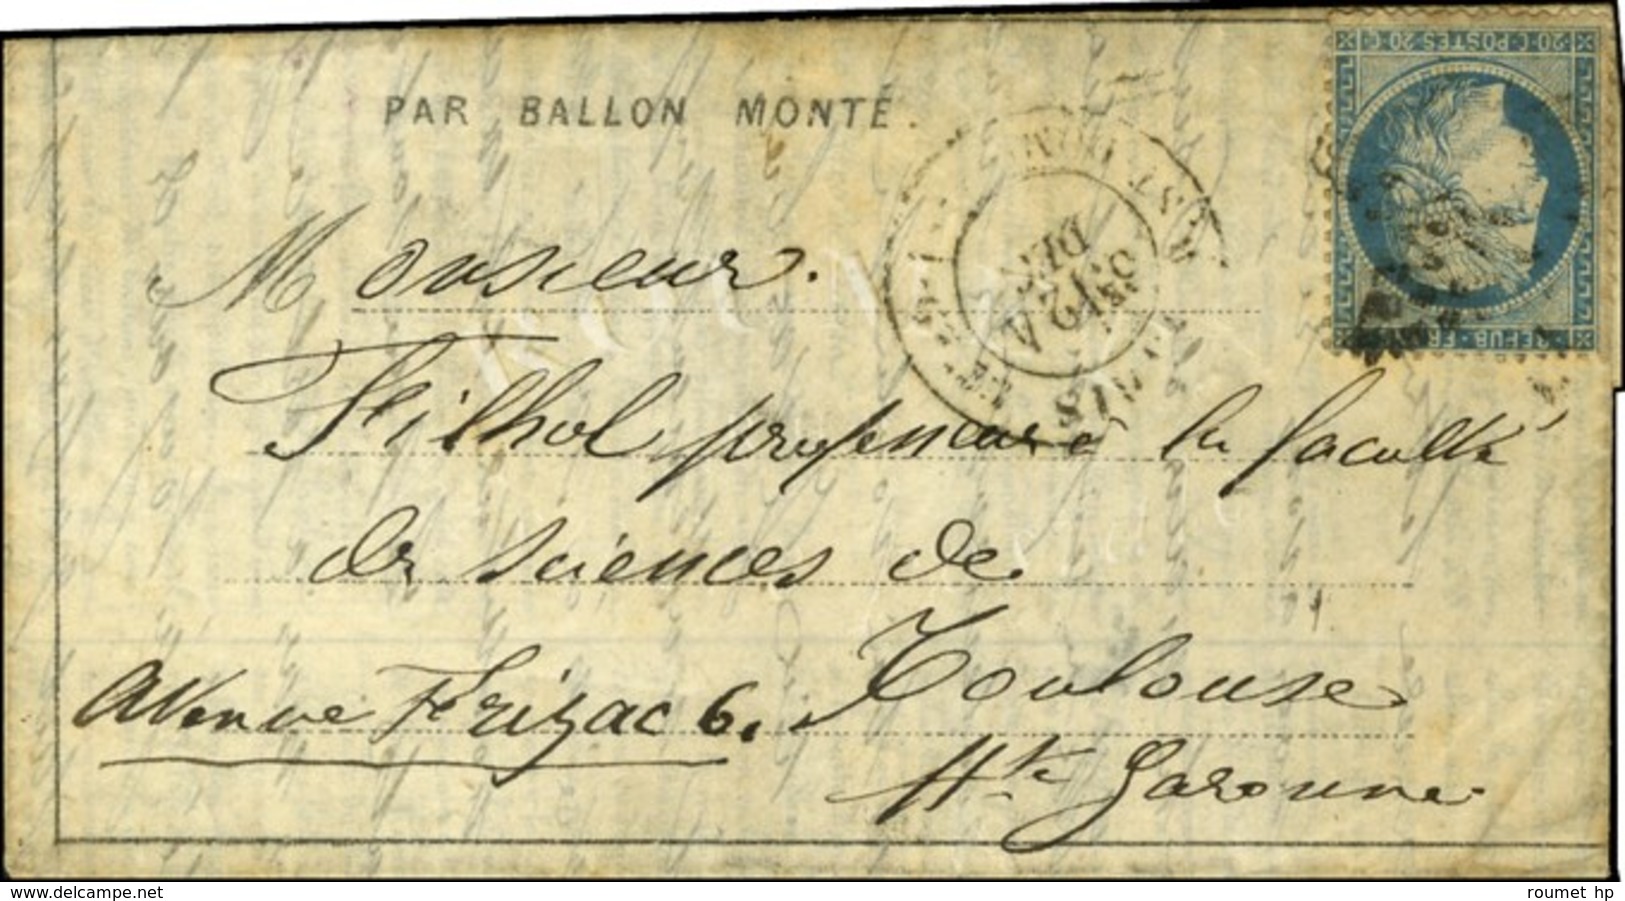 PAR BALLON MONTÉ.
20·C·POSTES·20·C
REPUB·FR
PARIS
DEC
Monsieur.
Filhol professeur à la faculté
des sciences de
Toulouse
Avenue Frizac 6.
Hte Garonne
www.delcampe.net
roumet hp